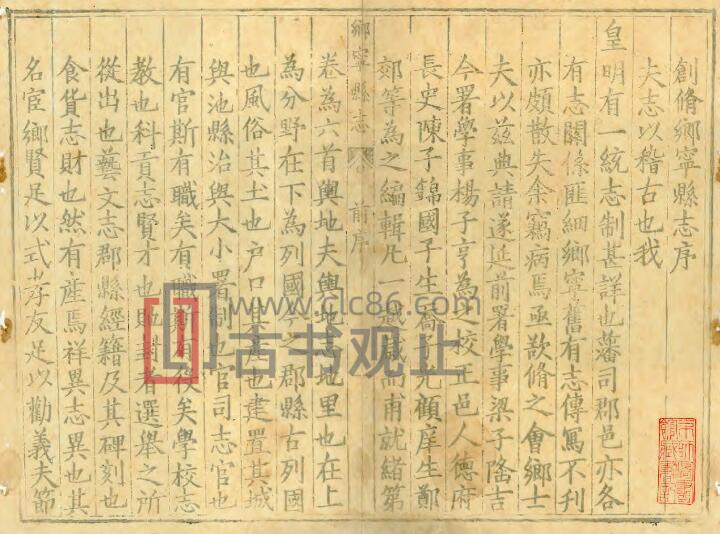 創脩鄉寧縣志序
夫志以稽古也我
皇明有一統志制甚詳也藩司郡邑亦各
有志關係匪細鄉寧舊有志傳寫不利
亦頗散失余竊病焉亟欲脩之會鄉士
夫以茲典請遂延前署學事梁子隆吉
今署學事楊子亨為 校正邑人德府
長史陳子錦國子生喬子光顧庠生鄭
郊等為之編輯凡一 歲 甫就緒第
鄉寧縣志 前序
卷為六首輿地夫輿地志地里也在上
為分野在下為列國 之郡縣古列國
也風俗其土也户口 產也建置其城
與池縣治與大小署制也官司志官也
有官斯有職矣有職斯有役矣學校志
教也科貢志賢才也 封 選舉之所
從出也藝文志郡縣經籍及其碑刻也
食貨志財也然有產焉祥異志異也其
名宦鄉賢足以式孝友足以勸義夫節
www.clc86.com
古书观止